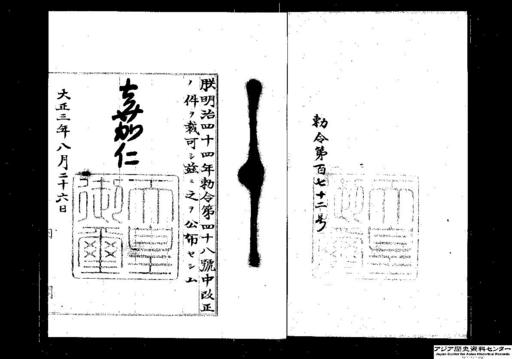 勅令第百七十二号
朕明治四十四年勅令第四十八號中改正
ノ件ヲ裁可シ茲ニ之ヲ公布セシム
嘉仁
大正三年八月二十六日
アジア歴史資料センター
Japan Center for Asian Historical Records